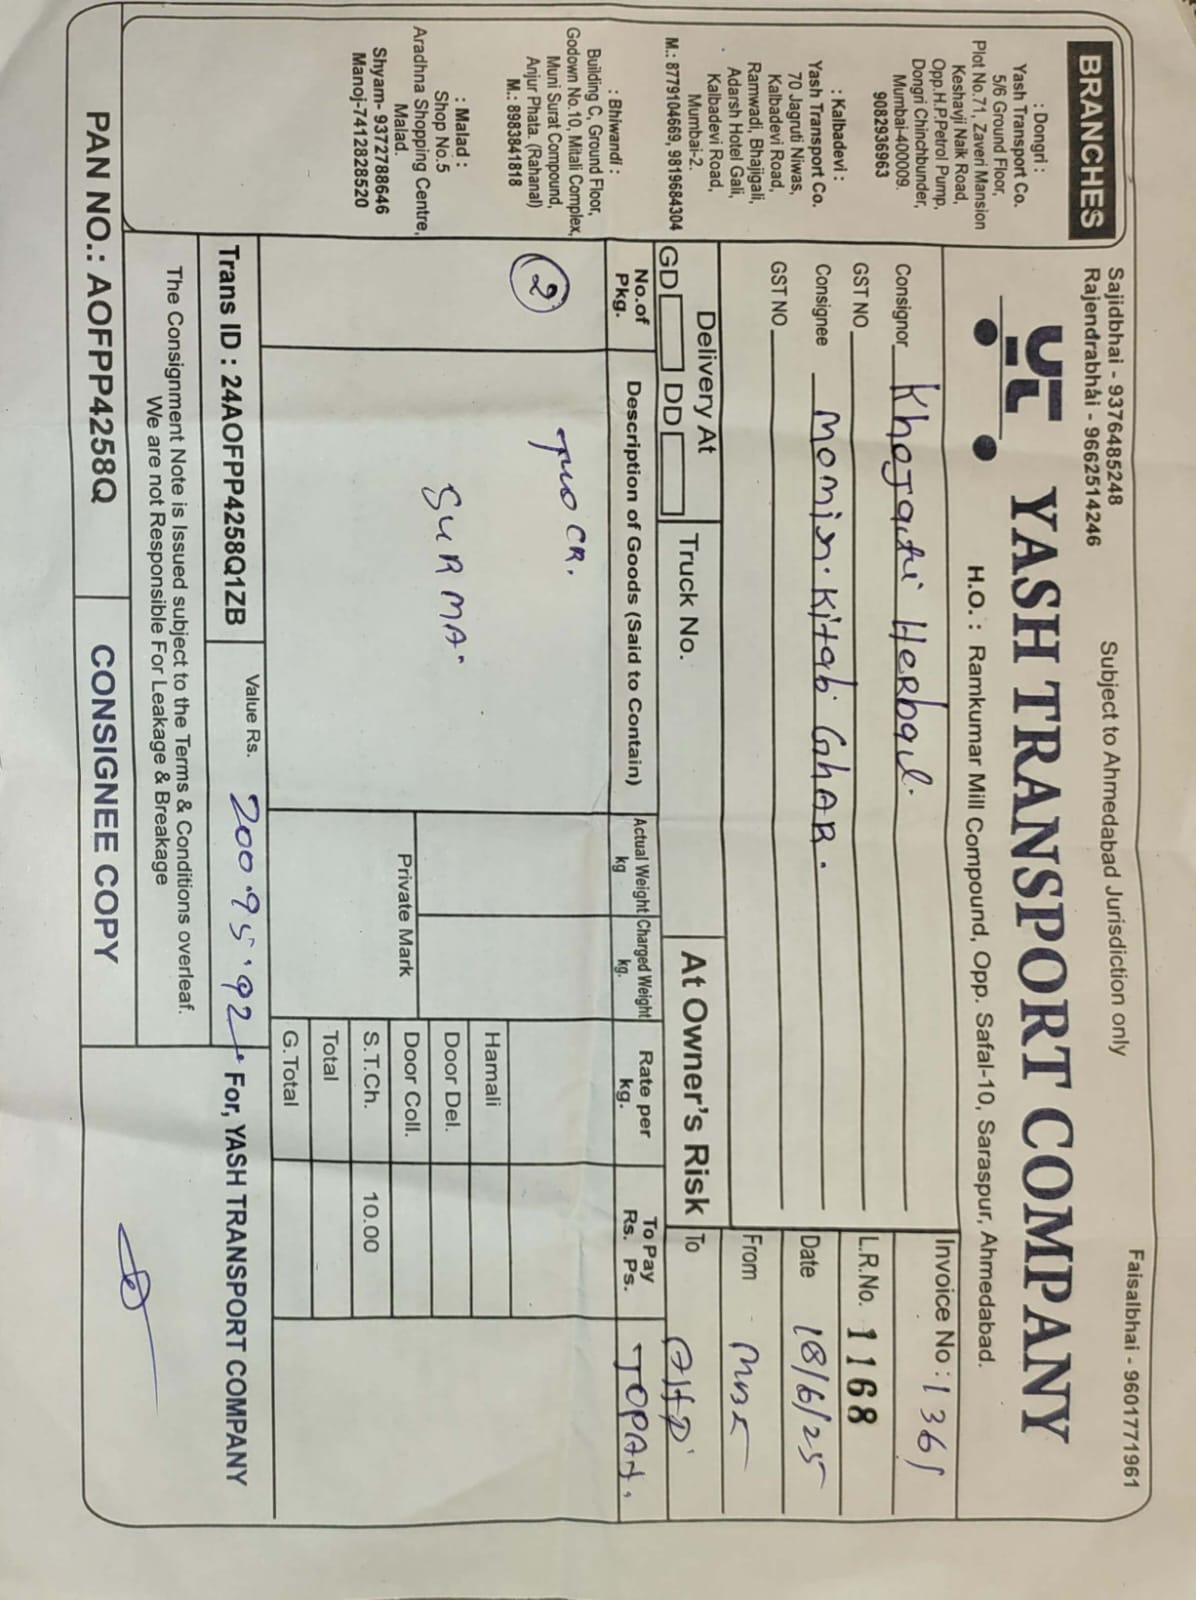 Sajidbhai - 9376485248
Rajendrabhai - 9662514246
Subject to Ahmedabad Jurisdiction only
Faisalbhai - 9601771961
YASH TRANSPORT COMPANY
H.O. : Ramkumar Mill Compound, Opp. Safal-10, Saraspur, Ahmedabad.
BRANCHES
: Dongri :
Yash Transport Co.
5/6 Ground Floor,
Plot No.71, Zaveri Mansion
Keshavji Naik Road,
Opp.H.P.Petrol Pump,
Dongri Chinchbunder,
Mumbai-400009.
9082936963
: Kalbadevi :
Yash Transport Co.
70 Jagruti Niwas,
Kalbadevi Road,
Ramwadi, Bhajigali,
Adarsh Hotel Gali,
Kalbadevi Road,
Mumbai-2.
M.: 8779104669, 9819684304
: Bhiwandi :
Building C, Ground Floor,
Godown No.10, Mitali Complex,
Muni Surat Compound,
Anjur Phata. (Rahanal)
M.: 8983841818
: Malad :
Shop No.5
Aradhna Shopping Centre,
Malad.
Shyam- 9372788646
Manoj-7412828520
Consignor Khojati Herbal.
GST NO
Consignee Momin. Kitab GhAR.
GST NO
Invoice No : 1361
L.R.No. 1168
Date 18/6/25
From
To AHD
Delivery At
GD DD
Truck No.
At Owner's Risk
No.of Pkg.
Description of Goods (Said to Contain)
Actual Weight kg
Charged Weight kg.
Rate per kg.
To Pay Rs. Ps.
TOPAY.
2
TWO CR.
SURMA.
Private Mark
Hamali
Door Del.
Door Coll.
S.T.Ch. 10.00
Total
G.Total
Trans ID : 24AOFPP4258Q1ZB
Value Rs. 200.95.92
For, YASH TRANSPORT COMPANY
The Consignment Note is Issued subject to the Terms & Conditions overleaf.
We are not Responsible For Leakage & Breakage
PAN NO.: AOFPP4258Q
CONSIGNEE COPY